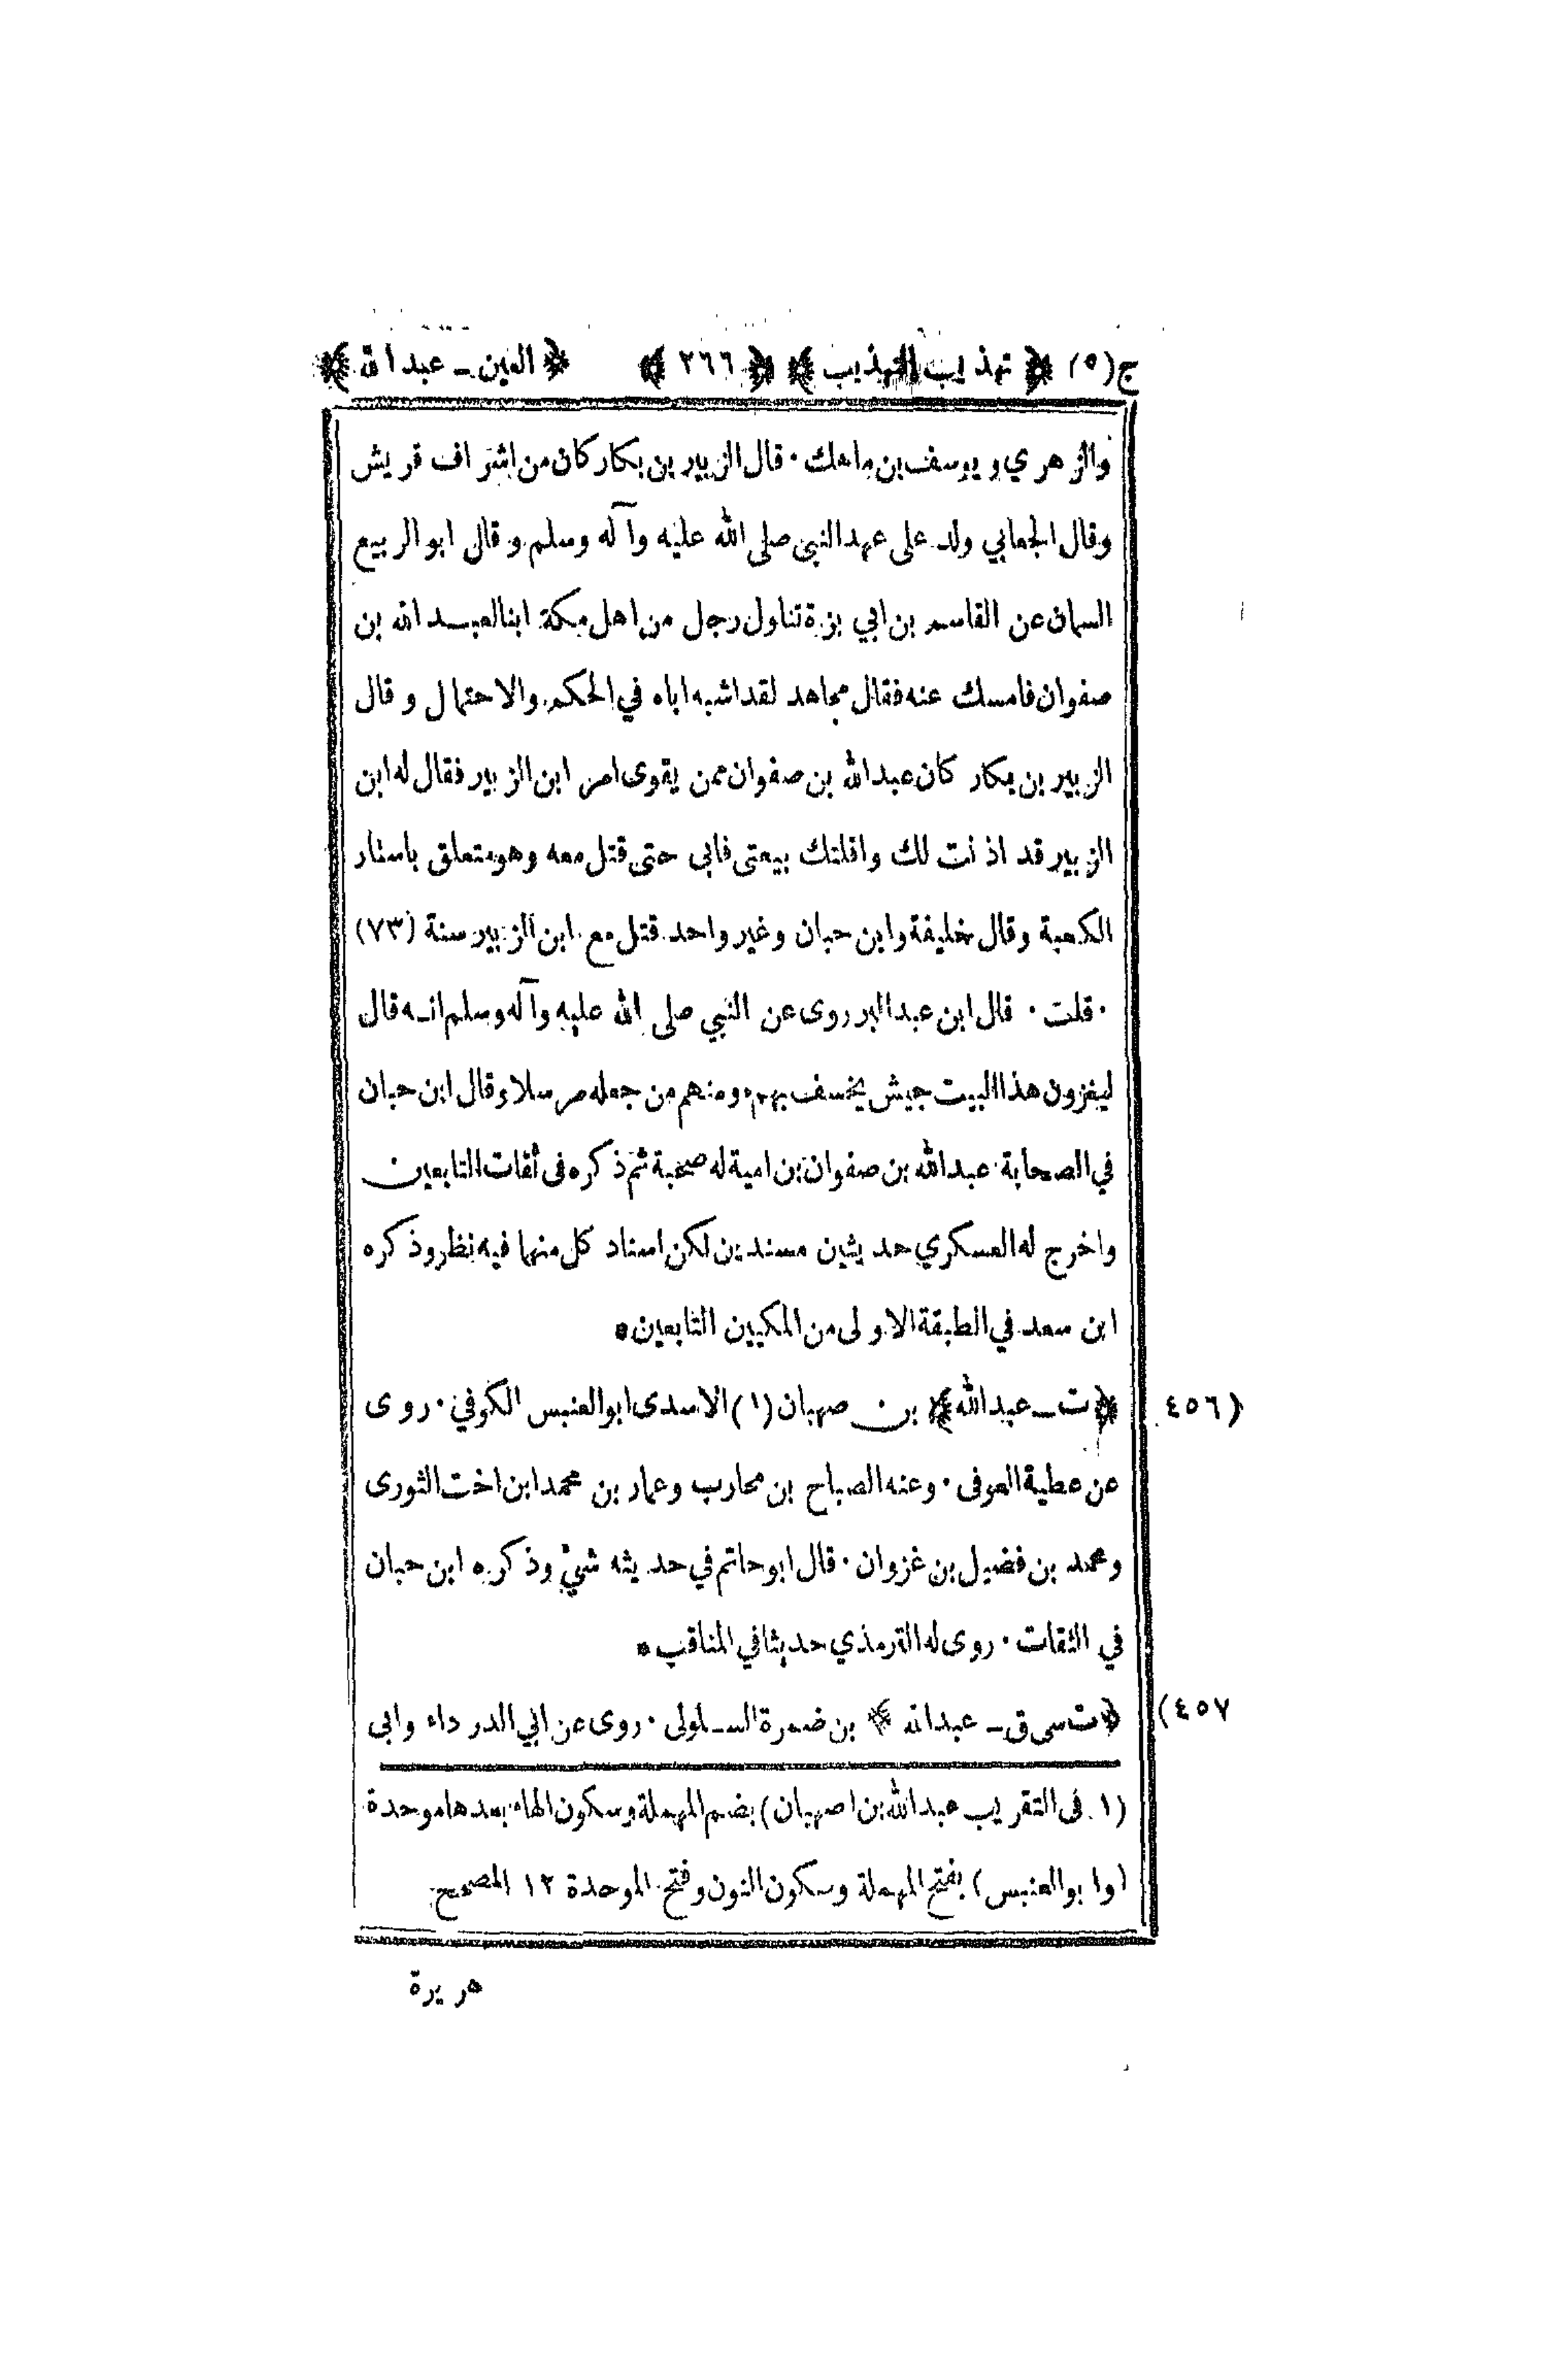 ج(٥) ﴿ تهذيب التهذيب ﴾ ﴿ ٢٦٦ ﴾ ﴿ العين ــ عبدالله ﴾
والزهري ويوسف بن ماهك ٠ قال الزبير بن بكار كان من اشراف قريش
وقال الجعابي ولد على عهد النبي صلى الله عليه وآله وسلم وقال ابو الربيع
السمان عن القاسم بن ابي بزة تناول رجل من اهل مكة ابنا لعبد الله بن
صفوان فامسك عنه فقال مجاهد لقد اشبه اباه في الحكم والاحتمال وقال
الزبير بن بكار كان عبد الله بن صفوان ممن يقوى امر ابن الزبير فقال له ابن
الزبير قد اذنت لك واقلتك بيعتى فابى حتى قتل معه وهو متعلق باستار
الكعبة وقال خليفة وابن حبان وغير واحد قتل مع ابن الزبير سنة (٧٣)
٠ قلت ٠ قال ابن عبد البر روى عن النبي صلى الله عليه وآله وسلم انه قال
ليغزون هذا البيت جيش يخسف بهم ومنهم من جعله مرسلا وقال ابن حبان
في الصحابة عبد الله بن صفوان بن امية له صحبة ثم ذكره فى ثقات التابعين
واخرج له العسكري حديثين مسندين لكن اسناد كل منهما فيه نظر وذكره
ابن سعد في الطبقة الاولى من المكيين التابعين *
(٤٥٦ ﴿ ت ــ عبد الله ﴾ بن صهبان (١) الاسدى ابو العنبس الكوفي ٠ روى
عن عطية العوفى ٠ وعنه الصباح بن محارب وعمار بن محمد ابن اخت الثورى
ومحمد بن فضيل بن غزوان ٠ قال ابو حاتم في حديثه شيء وذكره ابن حبان
في الثقات ٠ روى له الترمذي حديثا في المناقب *
(٤٥٧ ﴿ ت سى ق ــ عبد الله ﴾ بن ضمرة السلولى ٠ روى عن ابي الدرداء وابى
(١ فى التقريب عبد الله بن اصهبان) بضم المهملة وسكون الهاء بعدها موحدة
(وابو العنبس) بفتح المهملة وسكون النون وفتح الموحدة ١٢ المصحح
هريرة